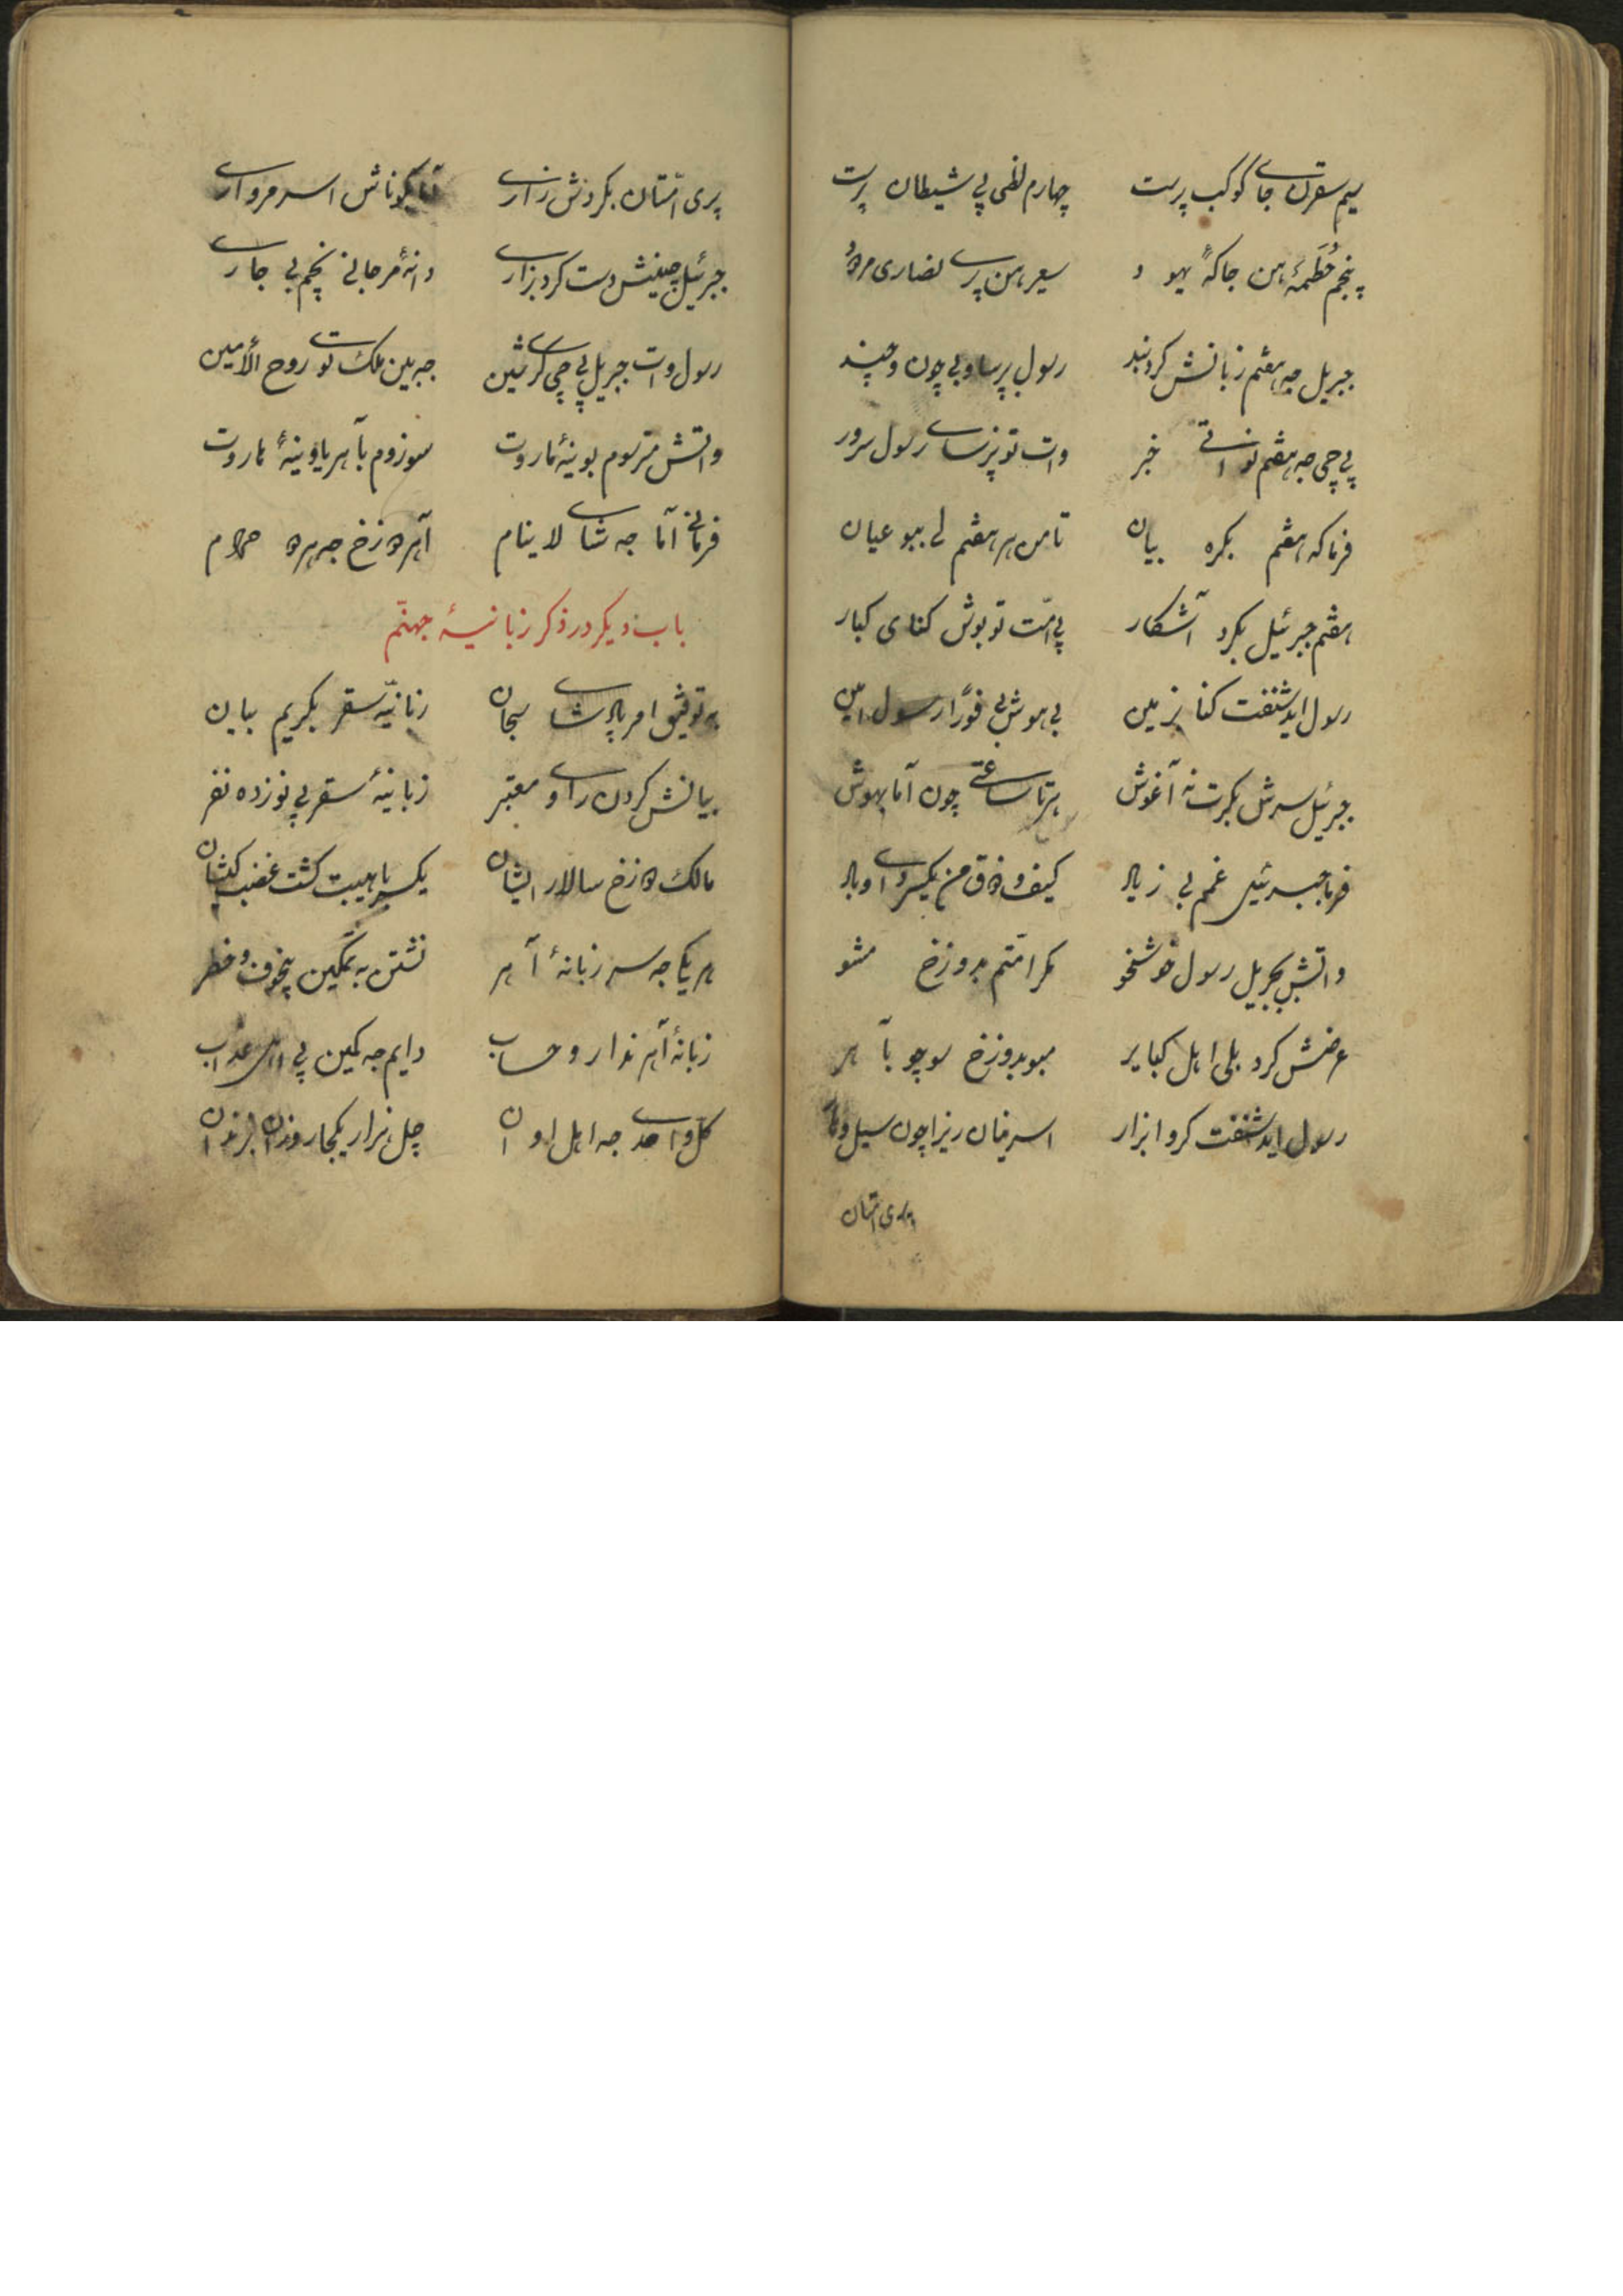 سیم سقرن جای کوکب پرست چهارم لظی پی شیطان پرست
پنجم حُطَمهٔ هن جاکهٔ یهود سعیر هن پری نصاری مردُ
جبریل جه هفتم زبانش کرد بند رسول پرسا و بی چون و چند
پی چی جه هفتم نواتی خبر وات تو پرسای رسول سرور
فرما که هفتم بکره بیان تا من هر هفتم لی ببو عیان
هفتم جبرئیل بکرد آشکار پی امّت تو بوش کنای کبار
رسول اید شنفت کنا بزمین بی هوش بی فورًا رسول امین
جبرئیل سرش بکرت نه آغوش هرتا ساعتی چون آما بهوش
فرما جبرئیل غمم بی زیاد کیف و ذوق من یکسر دای و باد
واتش بجبریل رسول خوشخو مکر امّتم بدوزخ مشو
عرضش کرد بلی اهل کبایر مبو بدوزخ سوچو بآهر
رسول اید شنفت کرد ابزار اسرینان ریزا چون سیل وفا
پری امّتان
پری امّتان بکردش زاری آما بکوناش اسر مرواری
جبرئیل چنیش دست کرد بزاری دانهٔ مرجانی پنجم بی جاری
رسول وات جبریل پی چی کری شین جبرین ملک تو روح الأمین
واتش مترسوم بوینهٔ ماروت سوزوم بآهر یا وینهٔ ماروت
فرمانی آما جه شای لاینام آهر دوزخ جه هر دو حرام
باب دیکر در ذکر زبانیهٔ جهنّم
به توفیق امر پادشای سبحان زبانیهٔ سقر بکریم بیان
بیانش کردن راو معتبر زبانیهٔ سقر بی نوزده نفر
مالک دوزخ سالار ایشان یکسر با هیبت کشت غضب کیشان
هر یکی جه سر زبانهٔ آهر نشتن به تمکین بیخوف و خطر
زبانهٔ آهر ندارو حساب دایم جه کمین پی اهل عذاب
کل واحدی جه اهل اوان چل هزار یکجار وزان